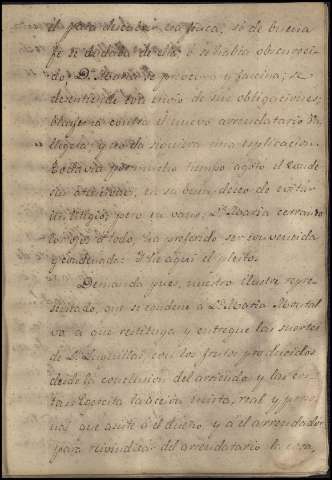 él para descubrir su finca, si de buena
fe se dudaba de ella, ó se habia obscureci-
do. Dª Maria se provoca y fascina, se
desentiende tod. envio de sus obligaciones;
blasfema contra el nuevo arrendatario V
llegría; y no da siquiera una esplicacion.
Todavia por mucho tiempo agotó el Conde
su en su buen deseo de evitar
un litigio; pero en vano; Dª Maria cerrando
los ojos á todo, ha preferido ser convencida
y condenada. He aqui el pleito.
Demanda pues, nuestro ilustre repre-
sentado, que se condene á Dª Maria Montal
vo á que restituya y entregue las suertes
de D. con los frutos producidos
desde la conclusion del arriendo y las cos-
tas. Egercita la accion mixta, real y perso-
nal que asiste á el dueño, y á el arrendador
para reivindicar del arrendatario la cosa,